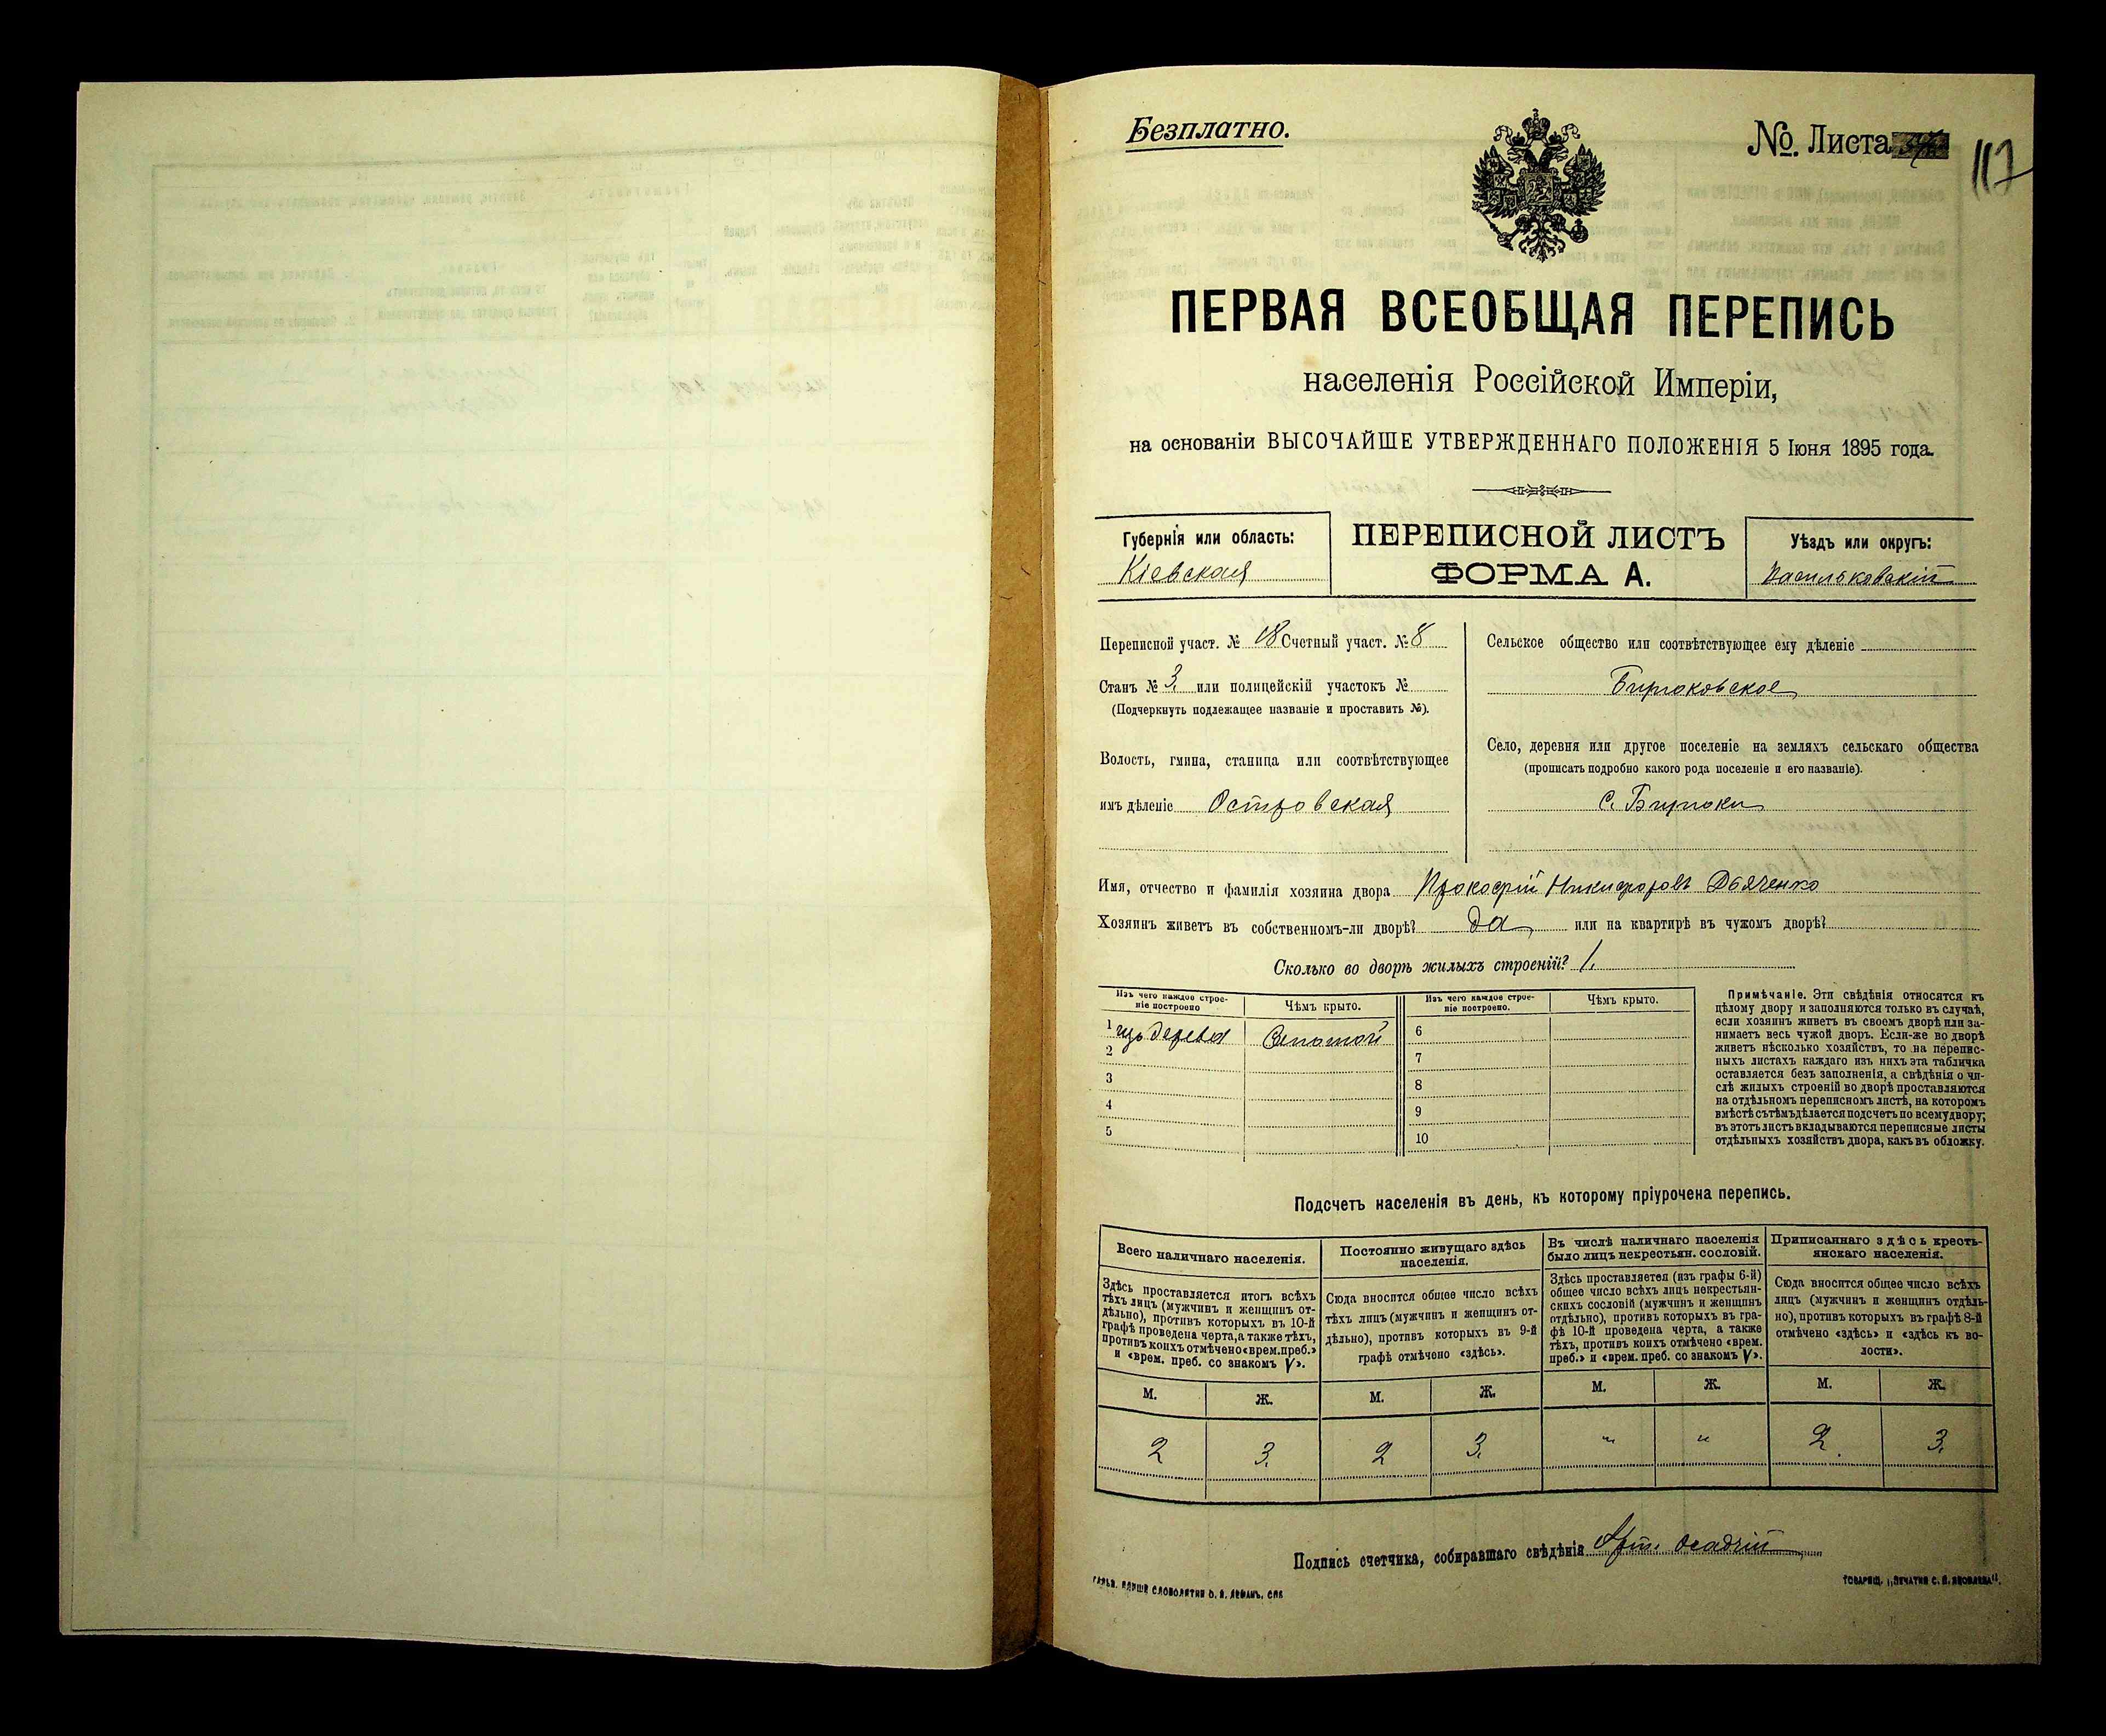 Безплатно.
№. Листа
117
ПЕРВАЯ ВСЕОБЩАЯ ПЕРЕПИСЬ
населенія Россійской Имперіи,
на основаніи ВЫСОЧАЙШЕ УТВЕРЖДЕННАГО ПОЛОЖЕНІЯ 5 Іюня 1895 года.
Губернія или область:
Кіевская
ПЕРЕПИСНОЙ ЛИСТЪ
ФОРМА А.
Уѣздъ или округъ:
Васильковскій
Переписной участ. № 18 Счетный участ. № 8
Станъ № 3. или полицейскій участокъ №
(Подчеркнуть подлежащее названіе и проставить №).
Волость, гмина, станица или соотвѣтствующее
имъ дѣленіе Островская
Сельское общество или соотвѣтствующее ему дѣленіе
Бирюковское
Село, деревня или другое поселеніе на земляхъ сельскаго общества
(прописать подробно какого рода поселеніе и его названіе).
с. Бирюки
Имя, отчество и фамилія хозяина двора Прокофій Никифоровъ Дьяченко
Хозяинъ живетъ въ собственномъ-ли дворѣ? да или на квартирѣ въ чужомъ дворѣ?
Сколько во дворѣ жилыхъ строеній? 1.
Изъ чего каждое строе-
ніе построено
Чѣмъ крыто.
Изъ чего каждое строе-
ніе построено.
Чѣмъ крыто.
1 изъ дерева
6
2
7
3
8
4
9
5
10
Примѣчаніе. Эти свѣдѣнія относятся къ
цѣлому двору и заполняются только въ случаѣ,
если хозяинъ живетъ въ своемъ дворѣ или за-
нимаетъ весь чужой дворъ. Если-же во дворѣ
живетъ нѣсколько хозяйствъ, то на перепис-
ныхъ листахъ каждаго изъ нихъ эта табличка
оставляется безъ заполненія, а свѣдѣнія о чи-
слѣ жилыхъ строеній во дворѣ проставляются
на отдѣльномъ переписномъ листѣ, на которомъ
вмѣстѣ съ тѣмъ дѣлается подсчетъ по всему двору;
въ этотъ листъ вкладываются переписные листы
отдѣльныхъ хозяйствъ двора, какъ въ обложку.
Подсчетъ населенія въ день, къ которому пріурочена перепись.
Всего наличнаго населенія.
Здѣсь проставляется итогъ всѣхъ
тѣхъ лицъ (мужчинъ и женщинъ от-
дѣльно), противъ которыхъ въ 10-й
графѣ проведена черта, а также тѣхъ,
противъ коихъ отмѣчено «врем. преб.»
и «врем. преб. со знакомъ V».
Постоянно живущаго здѣсь
населенія.
Сюда вносится общее число всѣхъ
тѣхъ лицъ (мужчинъ и женщинъ от-
дѣльно), противъ которыхъ въ 9-й
графѣ отмѣчено «здѣсь».
Въ числѣ наличнаго населенія
было лицъ некрестьян. сословій.
Здѣсь проставляется (изъ графы 6-й)
общее число всѣхъ лицъ некрестьян-
скихъ сословій (мужчинъ и женщинъ
отдѣльно), противъ которыхъ въ гра-
фѣ 10-й проведена черта, а также
тѣхъ, противъ коихъ отмѣчено «врем.
преб.» и «врем. преб. со знакомъ V».
Приписаннаго здѣсь кресть-
янскаго населенія.
Сюда вносится общее число всѣхъ
лицъ (мужчинъ и женщинъ отдѣль-
но), противъ которыхъ въ графѣ 8-й
отмѣчено «здѣсь» и «здѣсь къ во-
лости».
М. Ж. М. Ж. М. Ж. М. Ж.
2 3. 2 3. " " 2. 3.
Подпись счетчика, собиравшаго свѣдѣнія Осадчій
СЛОВОЛИТНИ О. И. ЛЕМАНЪ, СПБ
ТОВАРИЩ. „ПЕЧАТНЯ С. П. ЯКОВЛЕВА“.